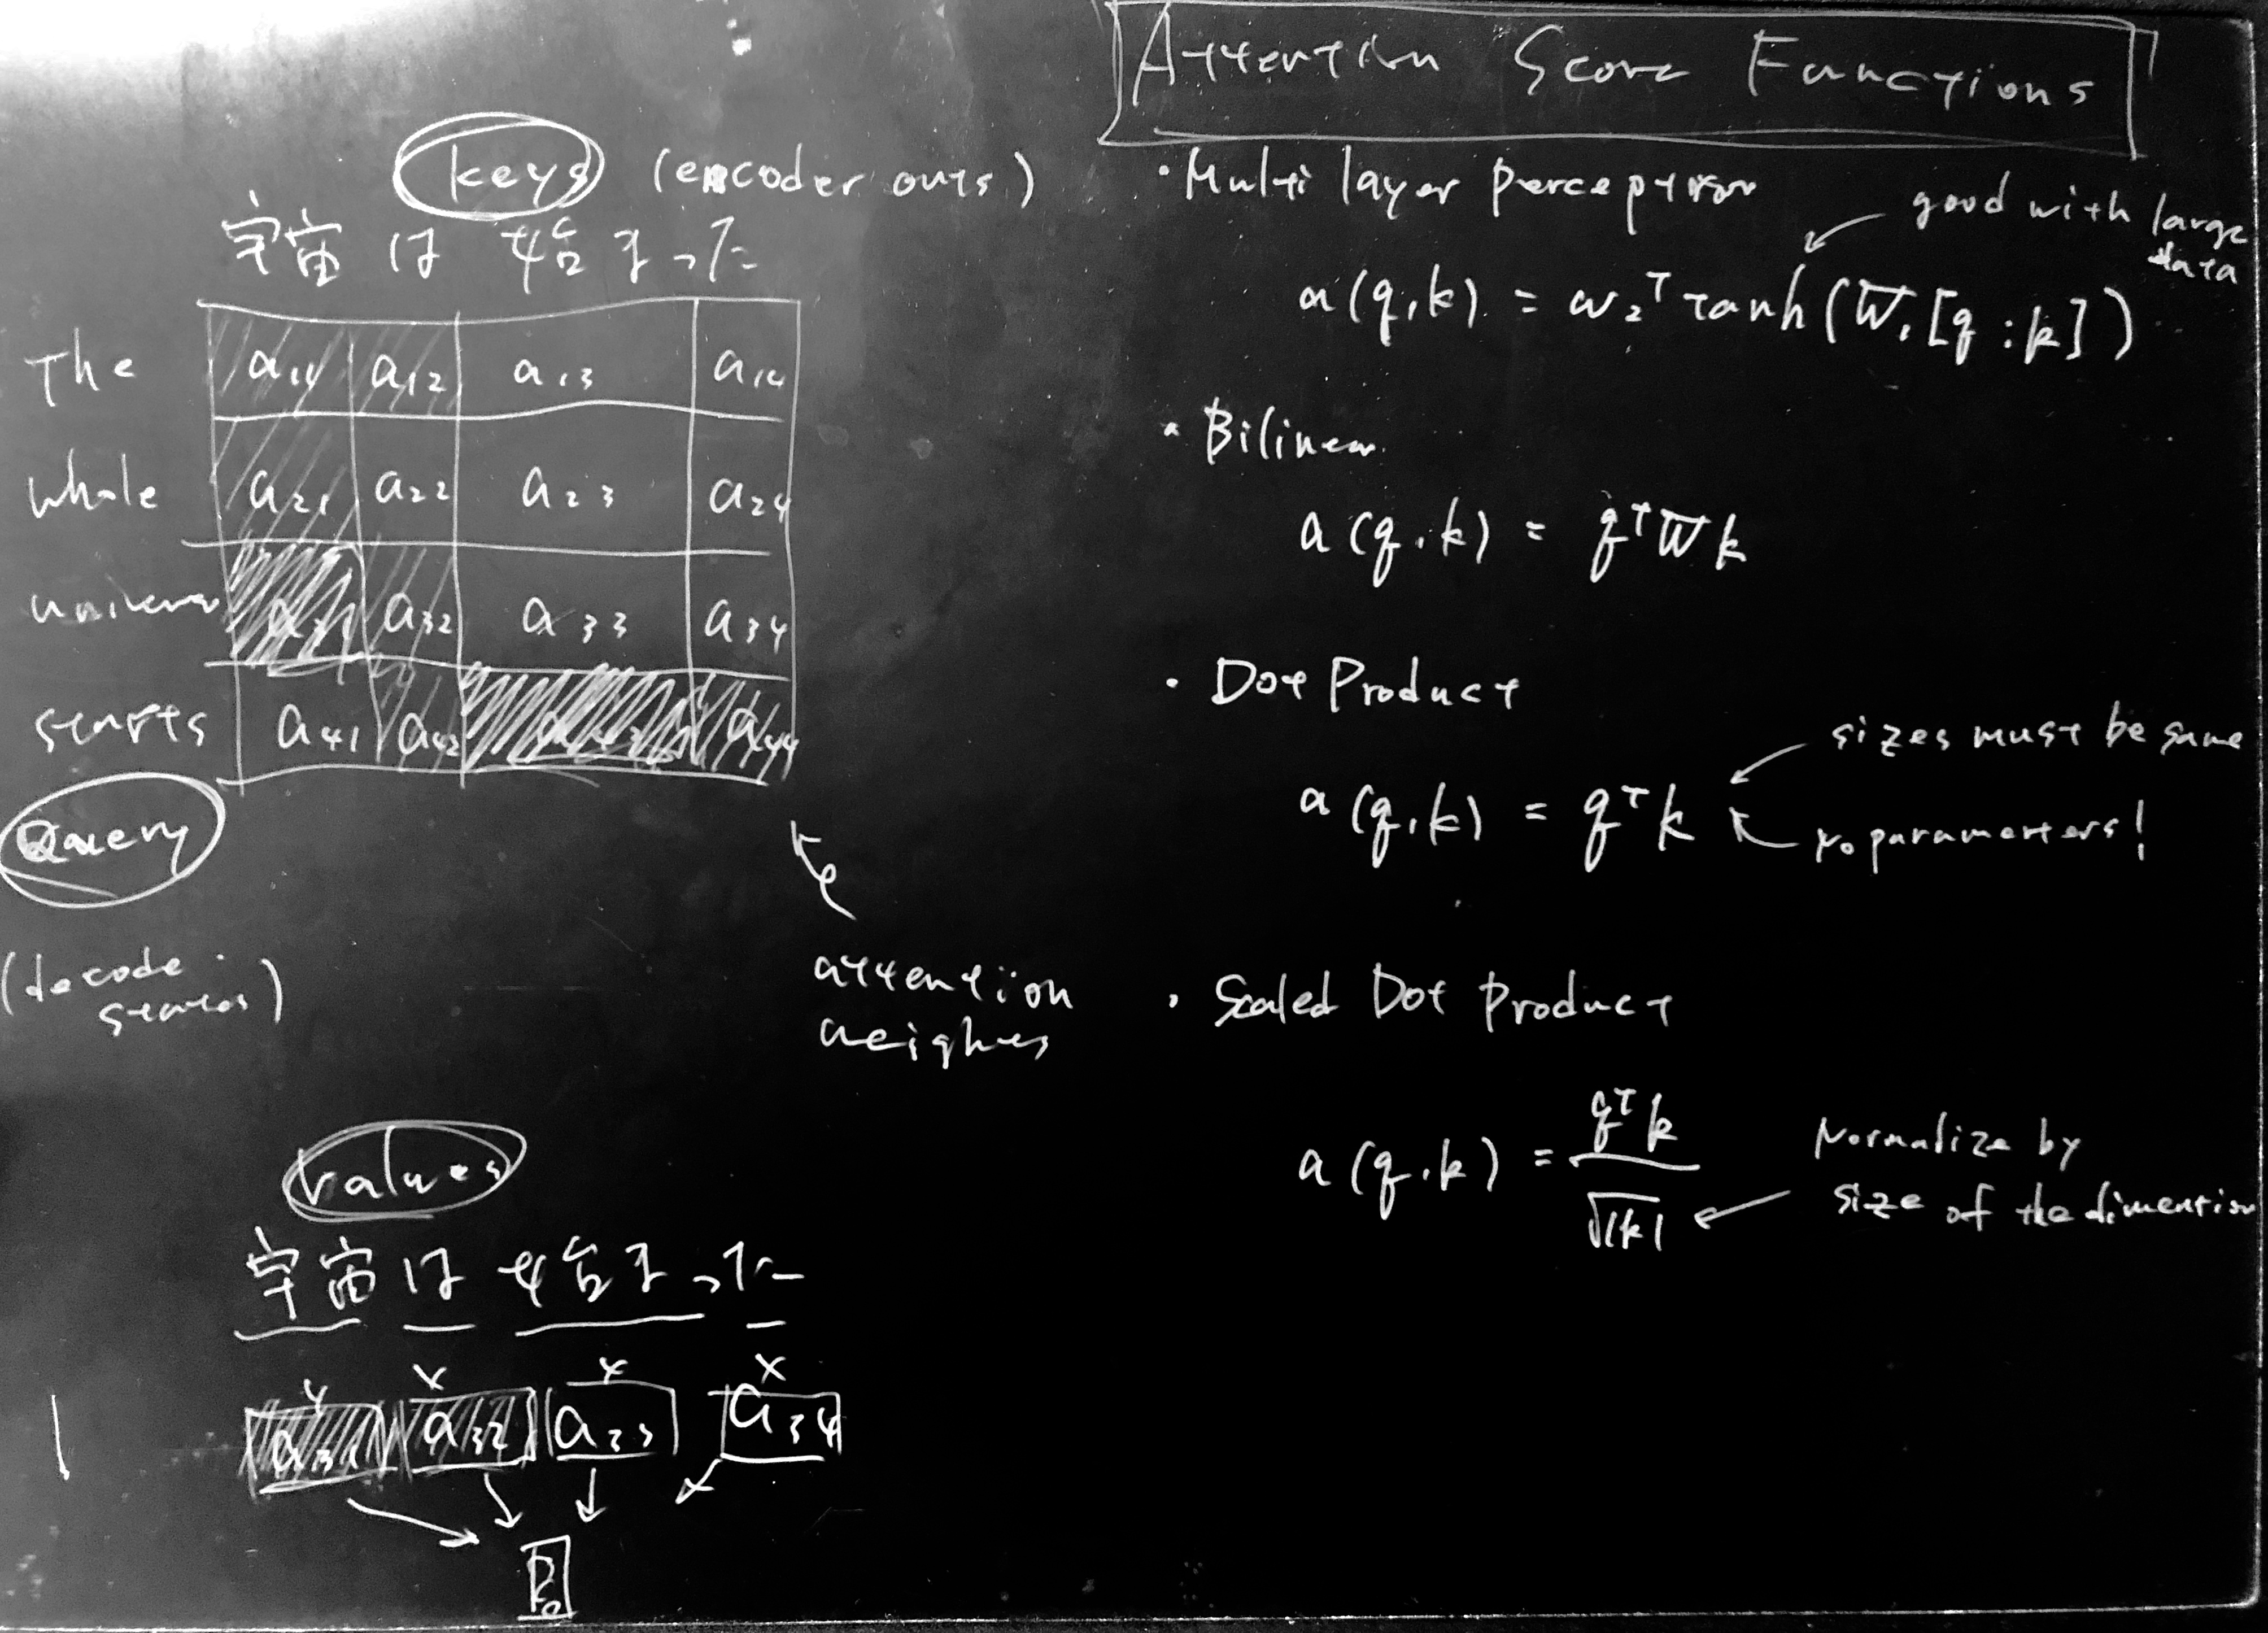 Attention Score Functions
keys (encoder outs)
宇宙 は 始まった
The a11 a12 a13 a14
whole a21 a22 a23 a24
universe a31 a32 a33 a34
starts a41 a42 a44
Query
(decode states)
attention
weights
values
宇宙 は 始まった
x x x x
a31 a32 a33 a34
・Multi layer perceptron
good with large
data
a(q,k) = w₂ᵀ tanh(W₁[q:k])
・Bilinear
a(q,k) = qᵀWk
・Dot Product
sizes must be same
a(q,k) = qᵀk
No parameters!
・Scaled Dot Product
a(q,k) = qᵀk / √|k|
Normalize by
size of the dimention